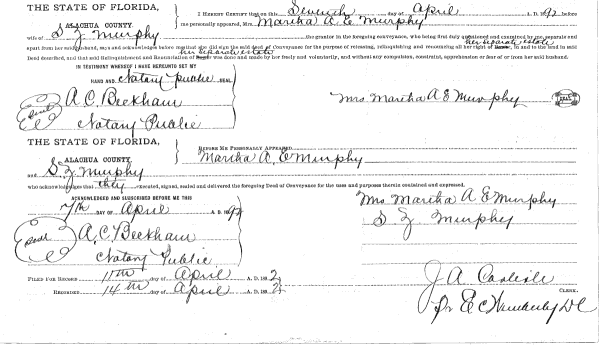 THE STATE OF FLORIDA,
ALACHUA COUNTY.
I HEREBY CERTIFY that on this Seventh day of April A.D. 1892 before
me personally appeared, Mrs. Martha A. E Murphy
wife of S Z Murphy the grantor in the foregoing conveyance, who being first duly questioned and examined by me separate and
apart from her said husband, says and acknowledges before me that she did sign the said deed of Conveyance for the purpose of releasing, relinquishing and renouncing all her right of her separate estate in and to the land in said
Deed described, and that said Relinquishment and Renunciation of her separate estate was done and made by her freely and voluntarily, and without any compulsion, constraint, apprehension or fear of or from her said husband.
IN TESTIMONY WHEREOF I HAVE HEREUNTO SET MY
HAND AND Notary public SEAL
Seal A. C. Beckham
Notary Public
Mrs Martha A E Murphy SEAL
THE STATE OF FLORIDA,
ALACHUA COUNTY.
BEFORE ME PERSONALLY APPEARED
Martha A. E Murphy
and S. Z Murphy
who acknowledges that they executed, signed, sealed and delivered the foregoing Deed of Conveyance for the uses and purposes therein contained and expressed.
ACKNOWLEDGED AND SUBSCRIBED BEFORE ME THIS
7th DAY OF April A. D. 1892
Seal A. C. Beckham
Notary Public
Mrs Martha A E Murphy
S Z Murphy
FILED FOR RECORD 11th day of April A. D. 1892
RECORDED 14th day of April A. D. 1892
J A Carlisle
CLERK.
Pr E C Wimberly DC